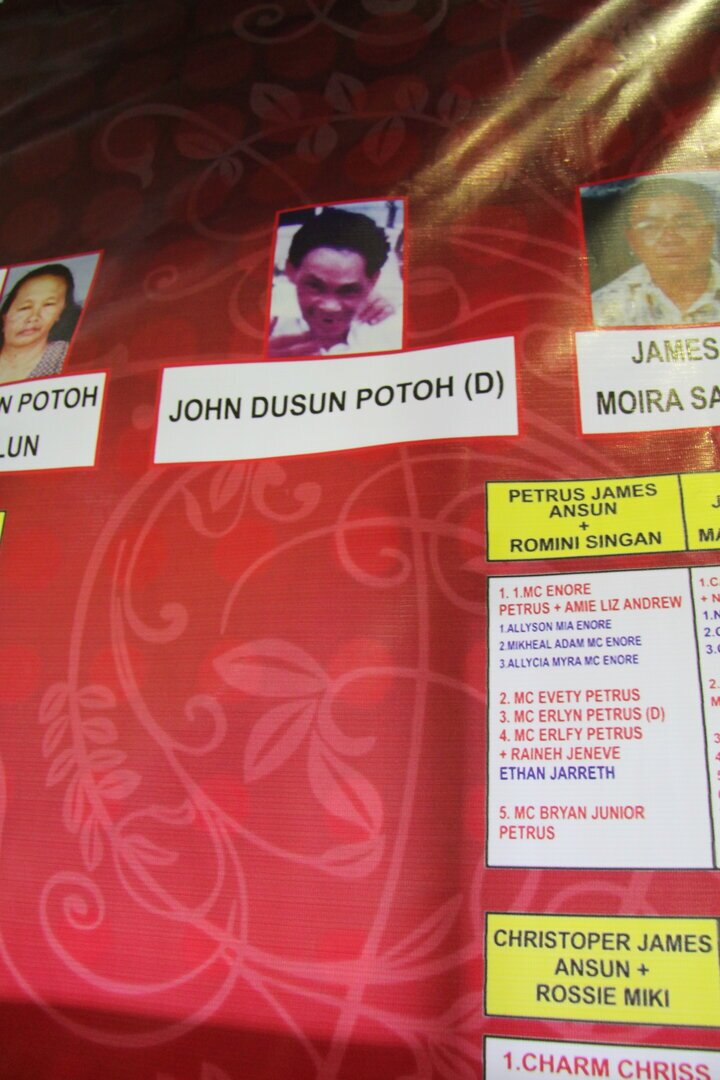 N POTOH
LUN
JOHN DUSUN POTOH (D)
JAMES
MOIRA SA
PETRUS JAMES
ANSUN
+
ROMINI SINGAN
J
MA
1. 1.MC ENORE
PETRUS + AMIE LIZ ANDREW
1.ALLYSON MIA ENORE
2.MIKHEAL ADAM MC ENORE
3.ALLYCIA MYRA MC ENORE
2. MC EVETY PETRUS
3. MC ERLYN PETRUS (D)
4. MC ERLFY PETRUS
+ RAINEH JENEVE
ETHAN JARRETH
5. MC BRYAN JUNIOR
PETRUS
1.C
+ N
CHRISTOPER JAMES
ANSUN +
ROSSIE MIKI
1.CHARM CHRISS